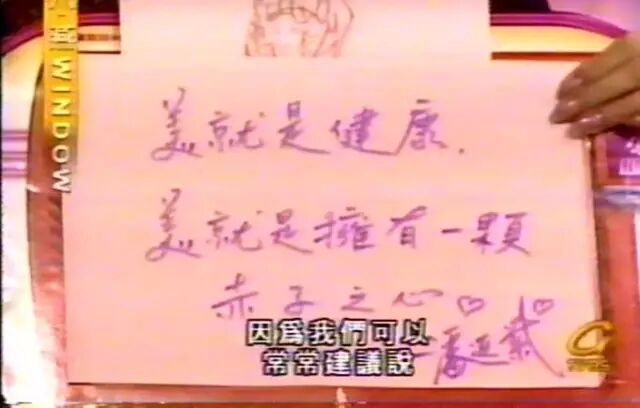 WINDOW
美就是健康.
美就是擁有一顆
赤子之心
因為我們可以
常常建議說